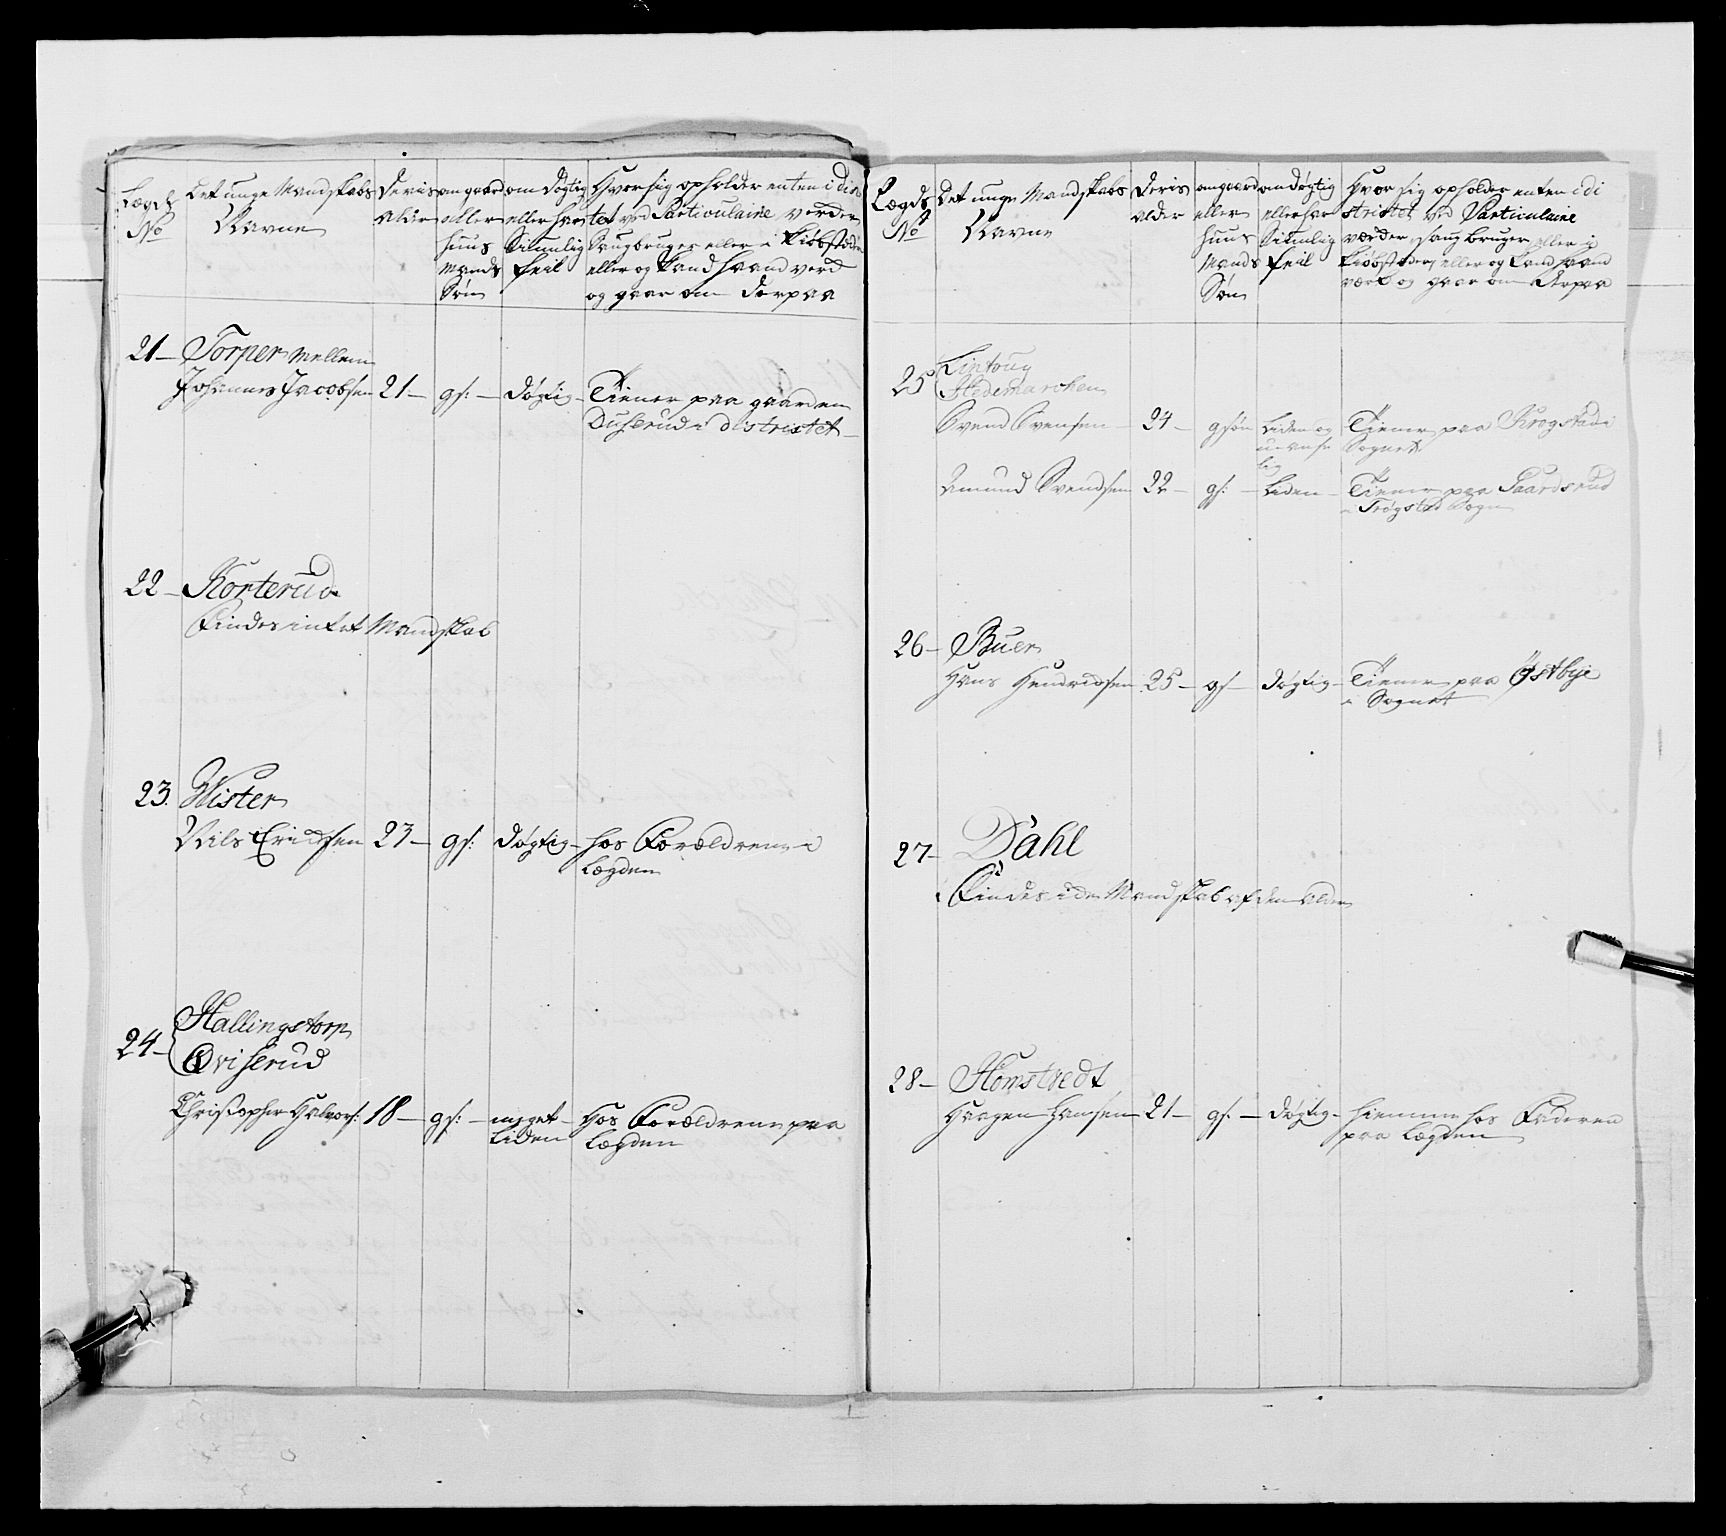 Lægds No
Det unge Mandskabs Navne
Deris alder
om gaard eller huus mands Søn
om døgtig eller har Siunlig feil
Hvor sig opholder enten i dis
tet ved Particulaire verder
Saugbruger eller i Kiøbstæder
eller og Land haand verck
og gaar om derpaa
21 – Torper mellem
Johannes Jacobsen 21 – gs: – døgtig – Tiener paa gaarden
Duserud i districtet –
22 – Korterud
Findes intet Mandskab
23. Wister
Nils Erichsen 23 – gs: døgtig – hos Forældrene i
Lægden
24 – Hallingstorp
Qviserud
Christopher Halvors: 18 – gs: – meget Liden – Hos Forældrene paa
Lægden
Lægds No
Det unge Mandskabs Navne
Deris alder
om gaard eller huus Mands Søn
om døgtig eller har Siunlig feil
Hvor sig opholder enten i di
strictet ved Particulaire
værder, saug bruger eller i
Kiøbstæder, eller og Land haand
værk og gaar om derpaa
25 Lintoug
Hedemarchen
Svend Svensen – 24 – gsøn Liden og uanse lig Tiener paa Krogstad i
Sognet
Amund Svendsen 22 – gs: – Liden – Tiener paa Gaardsrud
i Trøgstad Sogn
26 – Buer
Hans Hendrichsen 25 – gs – døgtig – Tiener paa Østbye
i Sognet
27 – Dahl
Findes i den Mandskab af den alder
28 – Homstvedt
Haagen Hansen 21 – gs. – døgtig – hiemme hos Faderen
paa Lægden